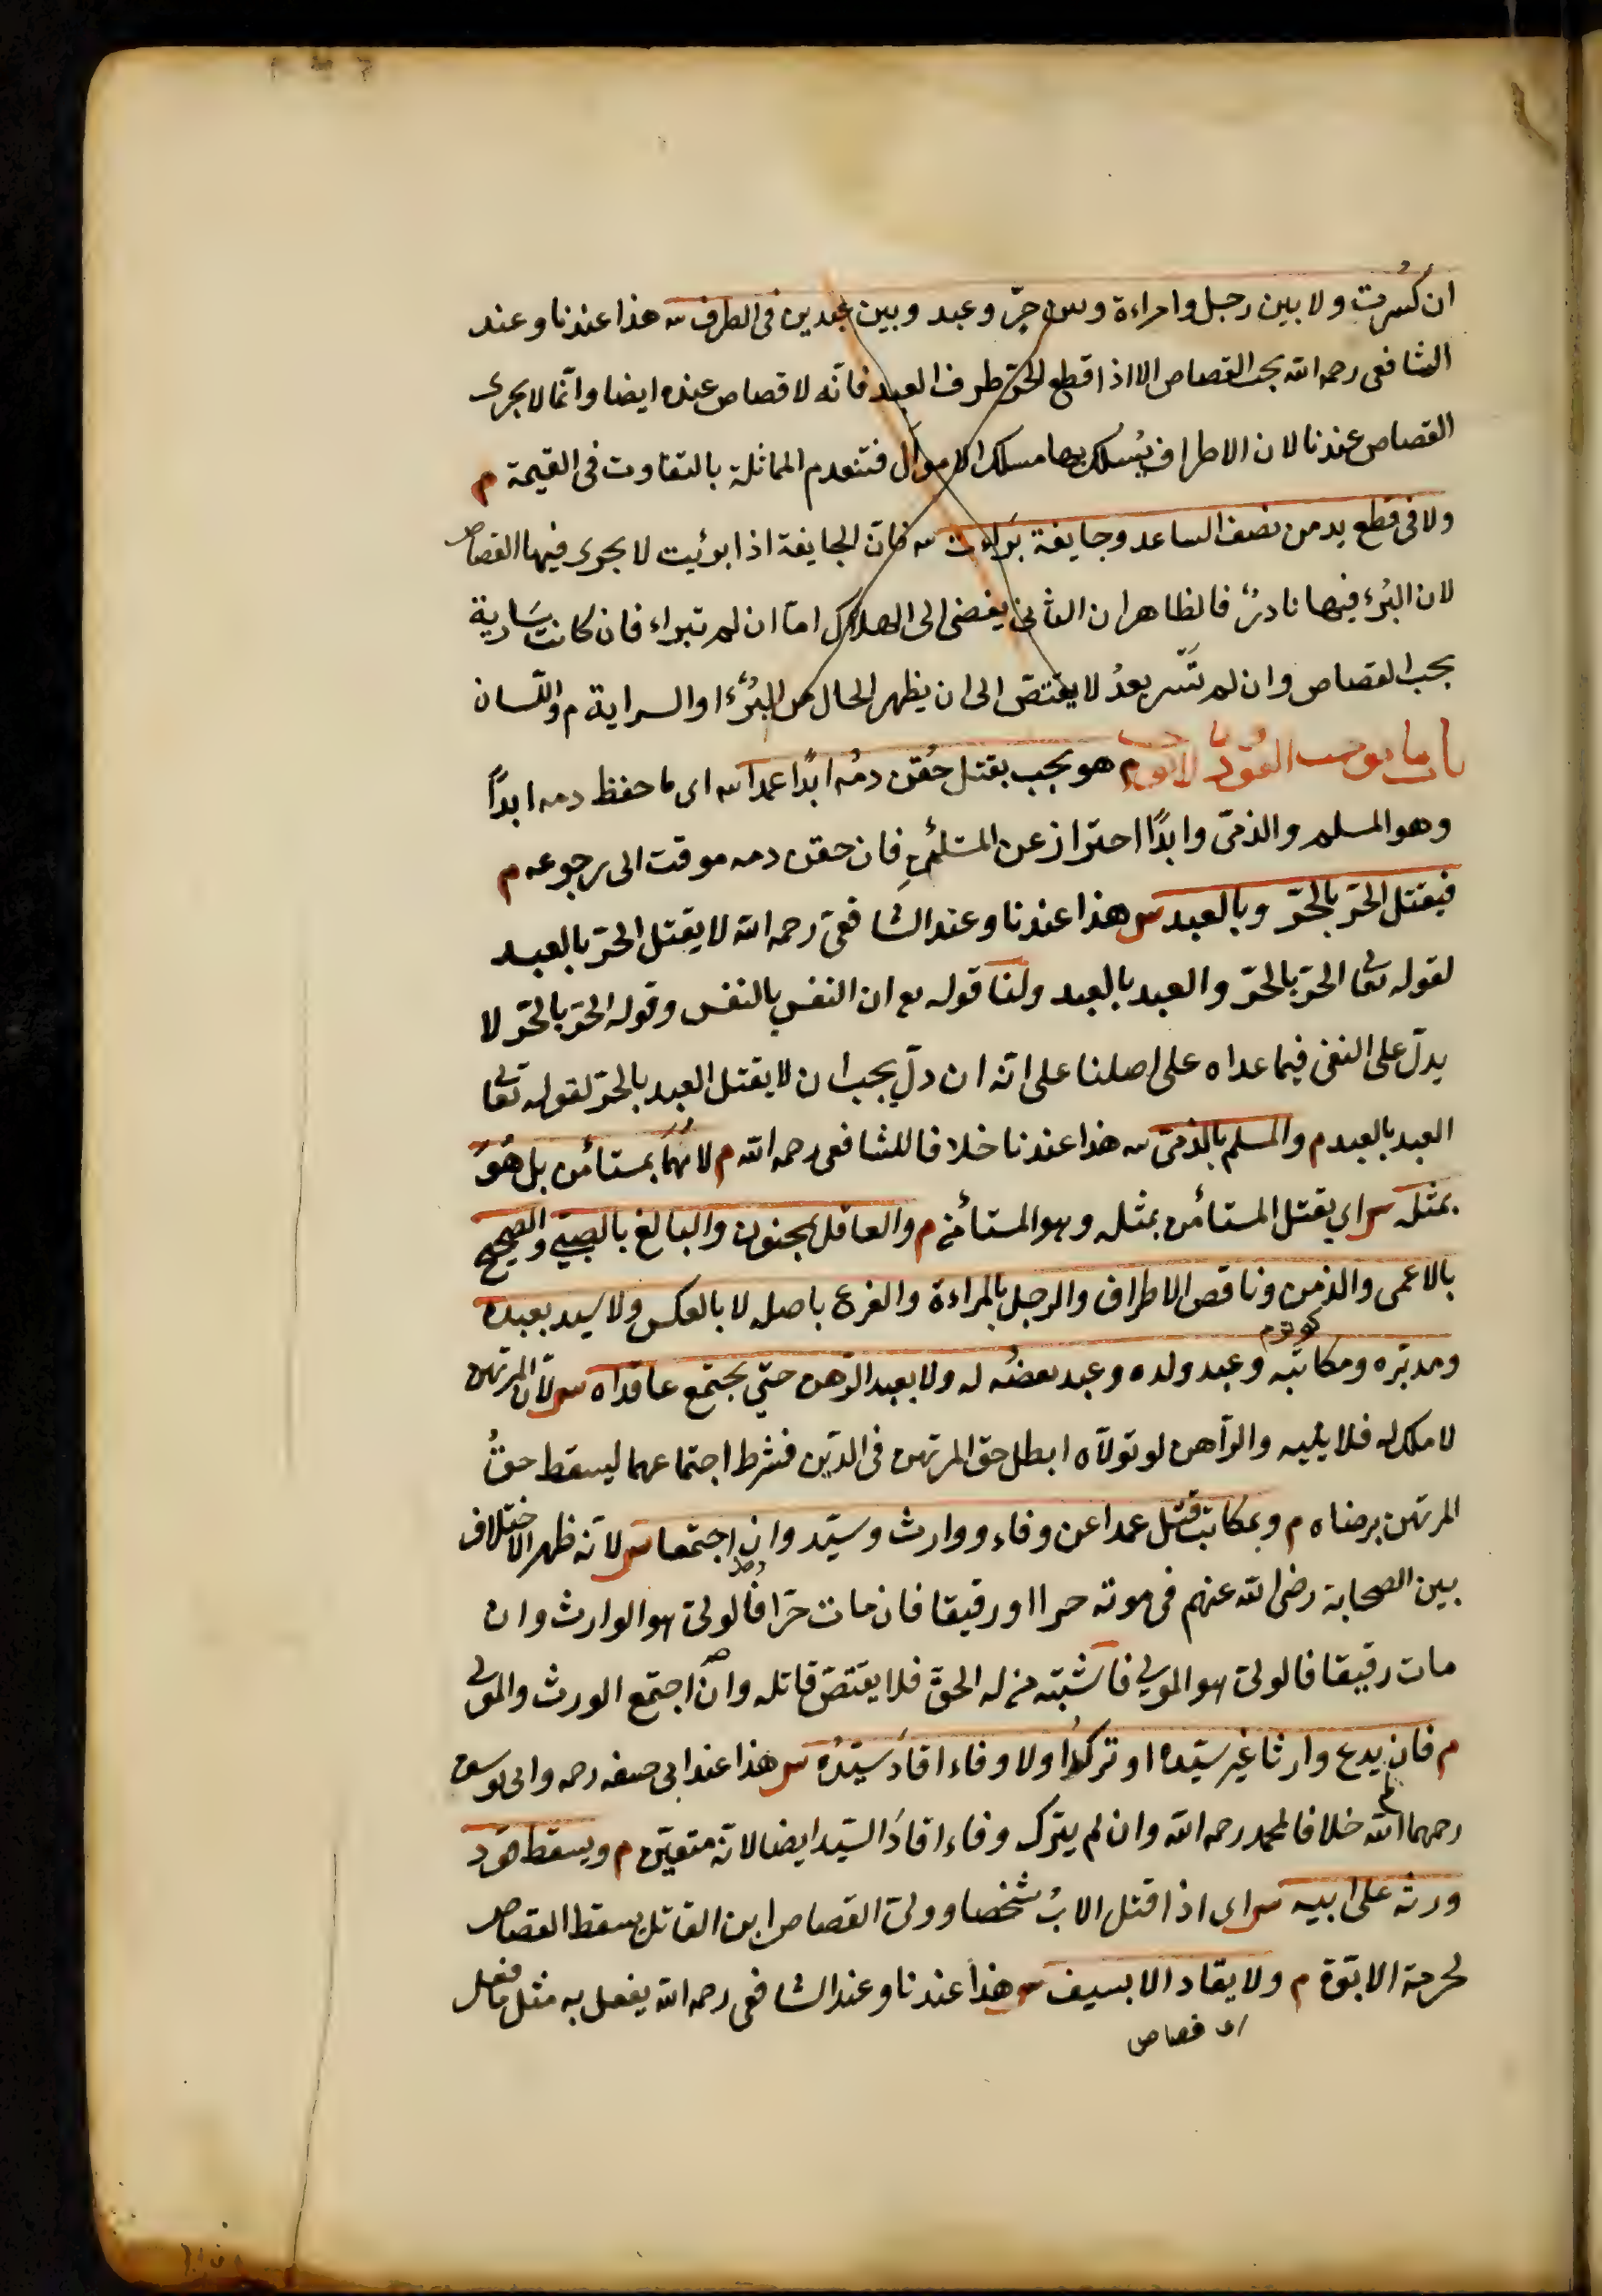 ان كُسرت ولا بين رجل وامراءة وبين حرّ وعبد وبين عبدين فى الطرف س هذا عندنا وعند
الشافعى رحمه الله يجب القصاص الا اذا قطع الحرّ طرف العبد فانّه لا قصاص عنده ايضا وانّما لا يجرى
القصاص عندنا لان الاطراف يُسلك بها مسلك الاموال فتنعدم المماثلة بالتفاوت فى القيمة م
ولا فى قطع يد من نصف الساعد وجايفة بَراءت س فانّ الجايفة اذا برئيت لا يجرى فيها القصاص
لان البُرء فيها نادرٌ فالظاهر ان الثانى يفضى الى الهلاك امّا ان لم تبراء فان كانت سَارية
يجب القصاص وان لم تَسْر بعدُ لا يقتصّ الى ان يظهر الحال من البُرء او السراية م واللّسان
باب ما يوجب القَوَد وما لا يوجب م هو يجب بقتل حُقن دمُه ابدًا عمدا س اى ما حفظ دمه ابدًا
وهو المسلم والذمّى وابدًا احتراز عن المستأمِن فان حقن دمه موقت الى رجوعه م
فيقتل الحرّ بالحرّ وبالعبد س هذا عندنا وعند الشافعىّ رحمه الله لا يقتل الحرّ بالعبد
لقوله تعالى الحرّ بالحرّ والعبد بالعبد ولنا قوله تع ان النفس بالنفس وقوله الحرّ بالحرّ لا
يدلّ على النفى فيما عداه على اصلنا على انّه ان دلّ يجب ان لا يقتل العبد بالحرّ لقوله تعالى
العبد بالعبد م والمسلم بالذمىّ س هذا عندنا خلافا للشافعى رحمه الله م لا هُمَا بمستأمن بل هُوَ
بمثله س اى يقتل المستأمن بمثله وهو المستأمن م والعاقل بمجنون والبالغ بالصبىّ والصحيح
بالاعمى والزمن وناقص الاطراف والرجل بالمراءة والفرع باصله لا بالعكس ولا سيد بعبده
ومدبّره ومكاتبه وعبد ولده وعبد بعضُه له ولا بعبد الرّهن حتّى يجتمع عاقداه س لانّ المرتهن
لا ملك له فلا يليه والرّاهن لو تولّاه ابطل حق المرتهن فى الدّين فشرط اجتماعهما ليسقط حقُّ
المرتهن برضاه م وبمكاتب قُتل عمدا عن وفاء ووارث وسيّد وان اجتمعا س لانّه ظهر الاختلاف
بين الصحابة رضى الله عنهم فى موته حرا او رقيقا فان مات حرّا فالولىّ هو الوارث وان
مات رقيقا فالولىّ هو المولى فاشتبه من له الحقّ فلا يقتصّ قاتله وان اجتمع الورث والمولى
م فان لم يدع وارثا غير سيّده او تركَ ولا وفاء اقادَ سيّدُه س هذا عند ابى حنيفه رحمه وابى يوسف
رحمهما الله خلافا لمحمد رحمه الله وان لم يترك وفاء اقادَ السّيّد ايضا لانّه متعيّن م ويسقط قود
ورثه على ابيه س اى اذا قتل الابُ شخصا وولىّ القصاص ابن القاتل يسقط القصاص
لحرمة الابوّة م ولا يقاد الا بسيف س هذا عندنا وعند الشافعى رحمه الله يفعل به مثل ما فعل
اى قصاص